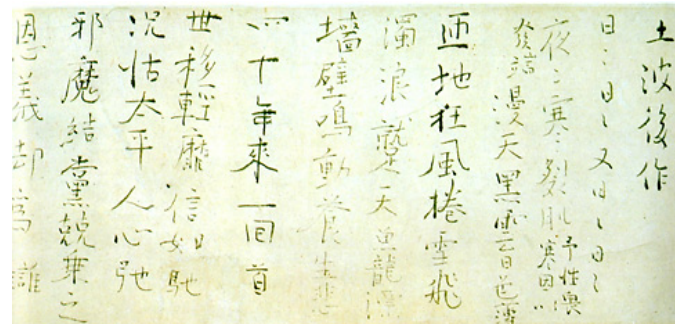 土波後作
日〻日〻又日〻日〻
夜〻寒〻裂肌 予性畏寒因以
發端 漫天黑雲日色薄
匝地狂風捲雪飛
濁浪蹴天魚龍漂
墻壁鳴動蒼生悲
四十年來一回首
世移輕靡信如馳
況怙太平人心弛
邪魔結黨競乗之
恩義却為讎